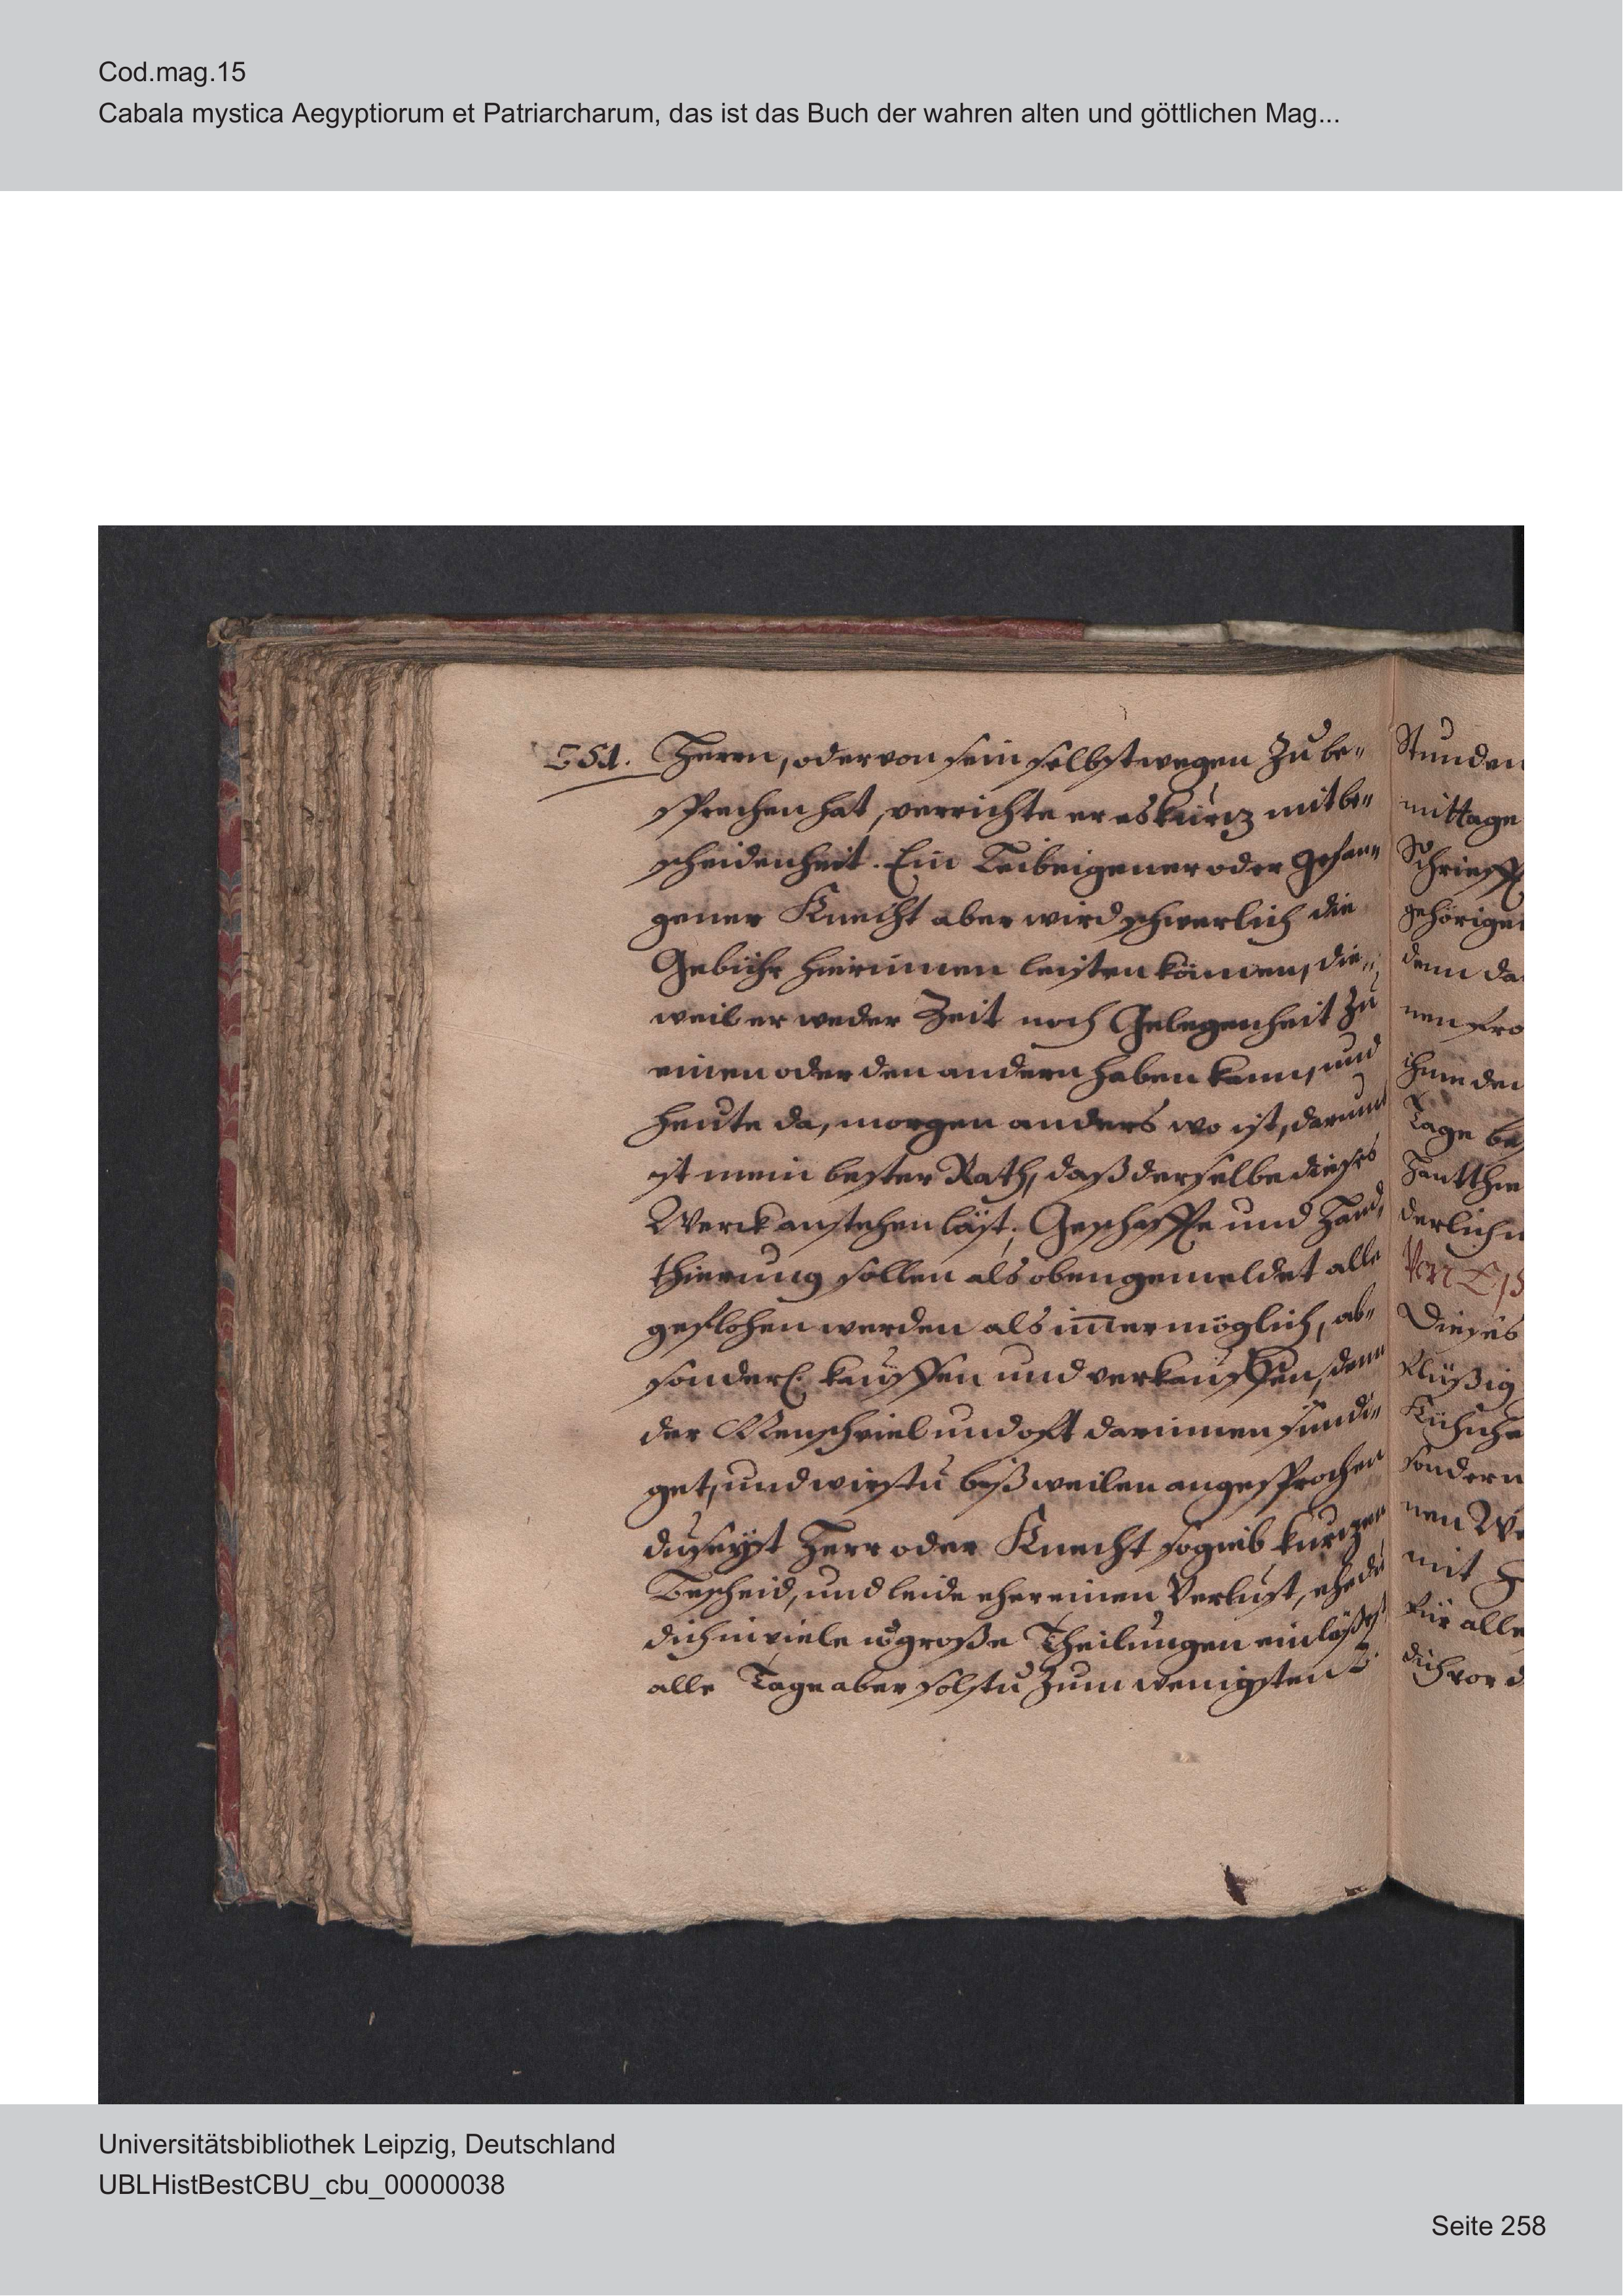 Cod.mag.15
Cabala mystica Aegyptiorum et Patriarcharum, das ist das Buch der wahren alten und göttlichen Mag...
Herrn, oder von sein selbst wegen zu be„
sprechen hat, verrichte er es kurz mit be„
scheidenheit. Ein Leibeigener oder gefan„
gener Knecht aber wird schwerlich die
Gebühr hierinnen leisten können, die„
weil er weder Zeit noch Gelegenheit zu
einen oder den andern haben kann, und
heute da, morgen anders wo ist, darum
ist mein bester Rath, daß derselbe dieses
Werck anstehen läst. Geschaffte und Hand,
thierung sollen als oben gemeldet alle
geflohen werden als im̄er möglich, ab„
sonderl. kauffen und verkauffen, denn
der Mensch viel und oft darinnen sündi„
get, und wirstu bißweilen angesprochen
du seyst Herr oder Knecht so gieb kurzen
Bescheid, und leide eher einen Verlust, ehe du
dich in viele große Theilungen einläßest
alle Tage aber solstu zum wenigsten 2.
Stunden
mittage
Schrieff
gehörige
denn da
nen
ihme den
Tage be
Hantthie
derlich
Dieses
sondern
nen We
mit
für alle
dich vor d
Universitätsbibliothek Leipzig, Deutschland
UBLHistBestCBU_cbu_00000038
Seite 258